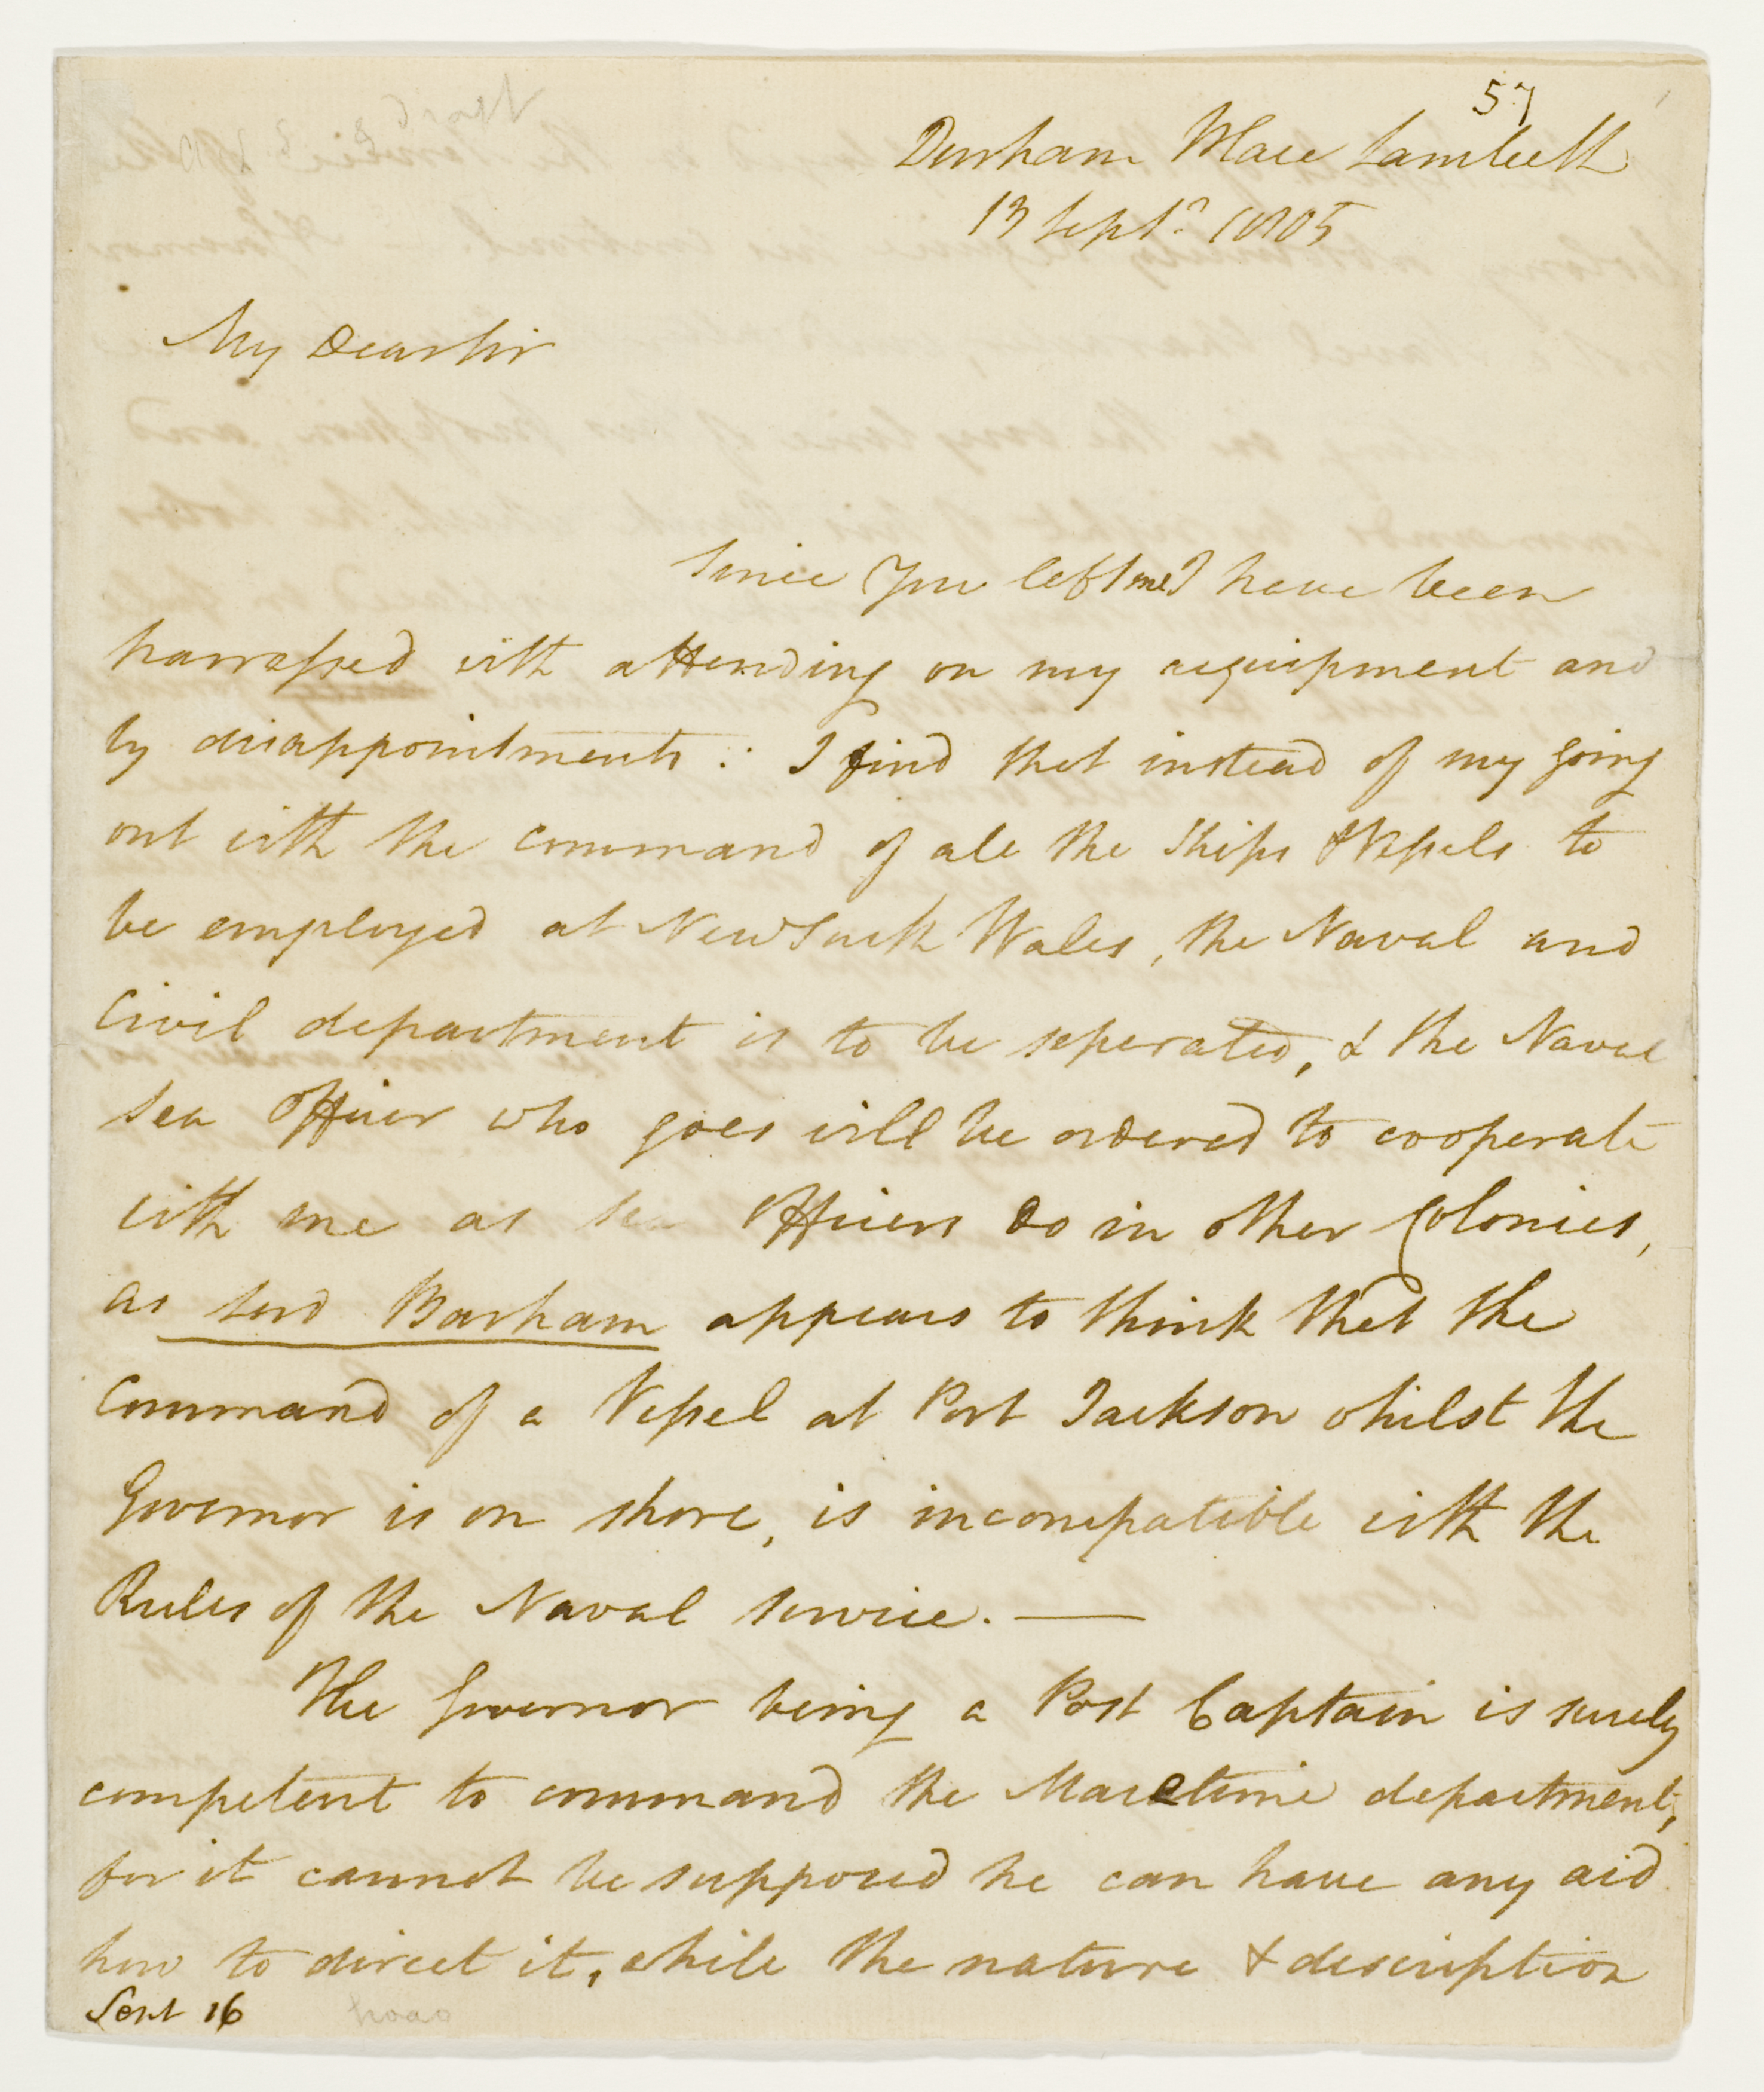 57
Durham Place Lambeth
13 Septr. 1805
My Dear Sir
Since You left me I have been
harrassed with attending on my equipment and
by disappointments: I find that instead of my going
out with the command of all the Ships & Vessels to
be employed at New South Wales, the Naval and
Civil department is to be seperated, & the Naval
Sea Officer who goes will be ordered to cooperate
with me as Sea Officers do in other Colonies,
as Lord Barham appears to think that the
Command of a Vessel at Port Jackson whilst the
Governor is on shore, is incompatible with the
Rules of the Naval Service. —
The Governor being a Post Captain is surely
competent to command the Maretime department,
for it cannot be supposed he can have any aid
how to direct it, while the nature & description
Sept 16